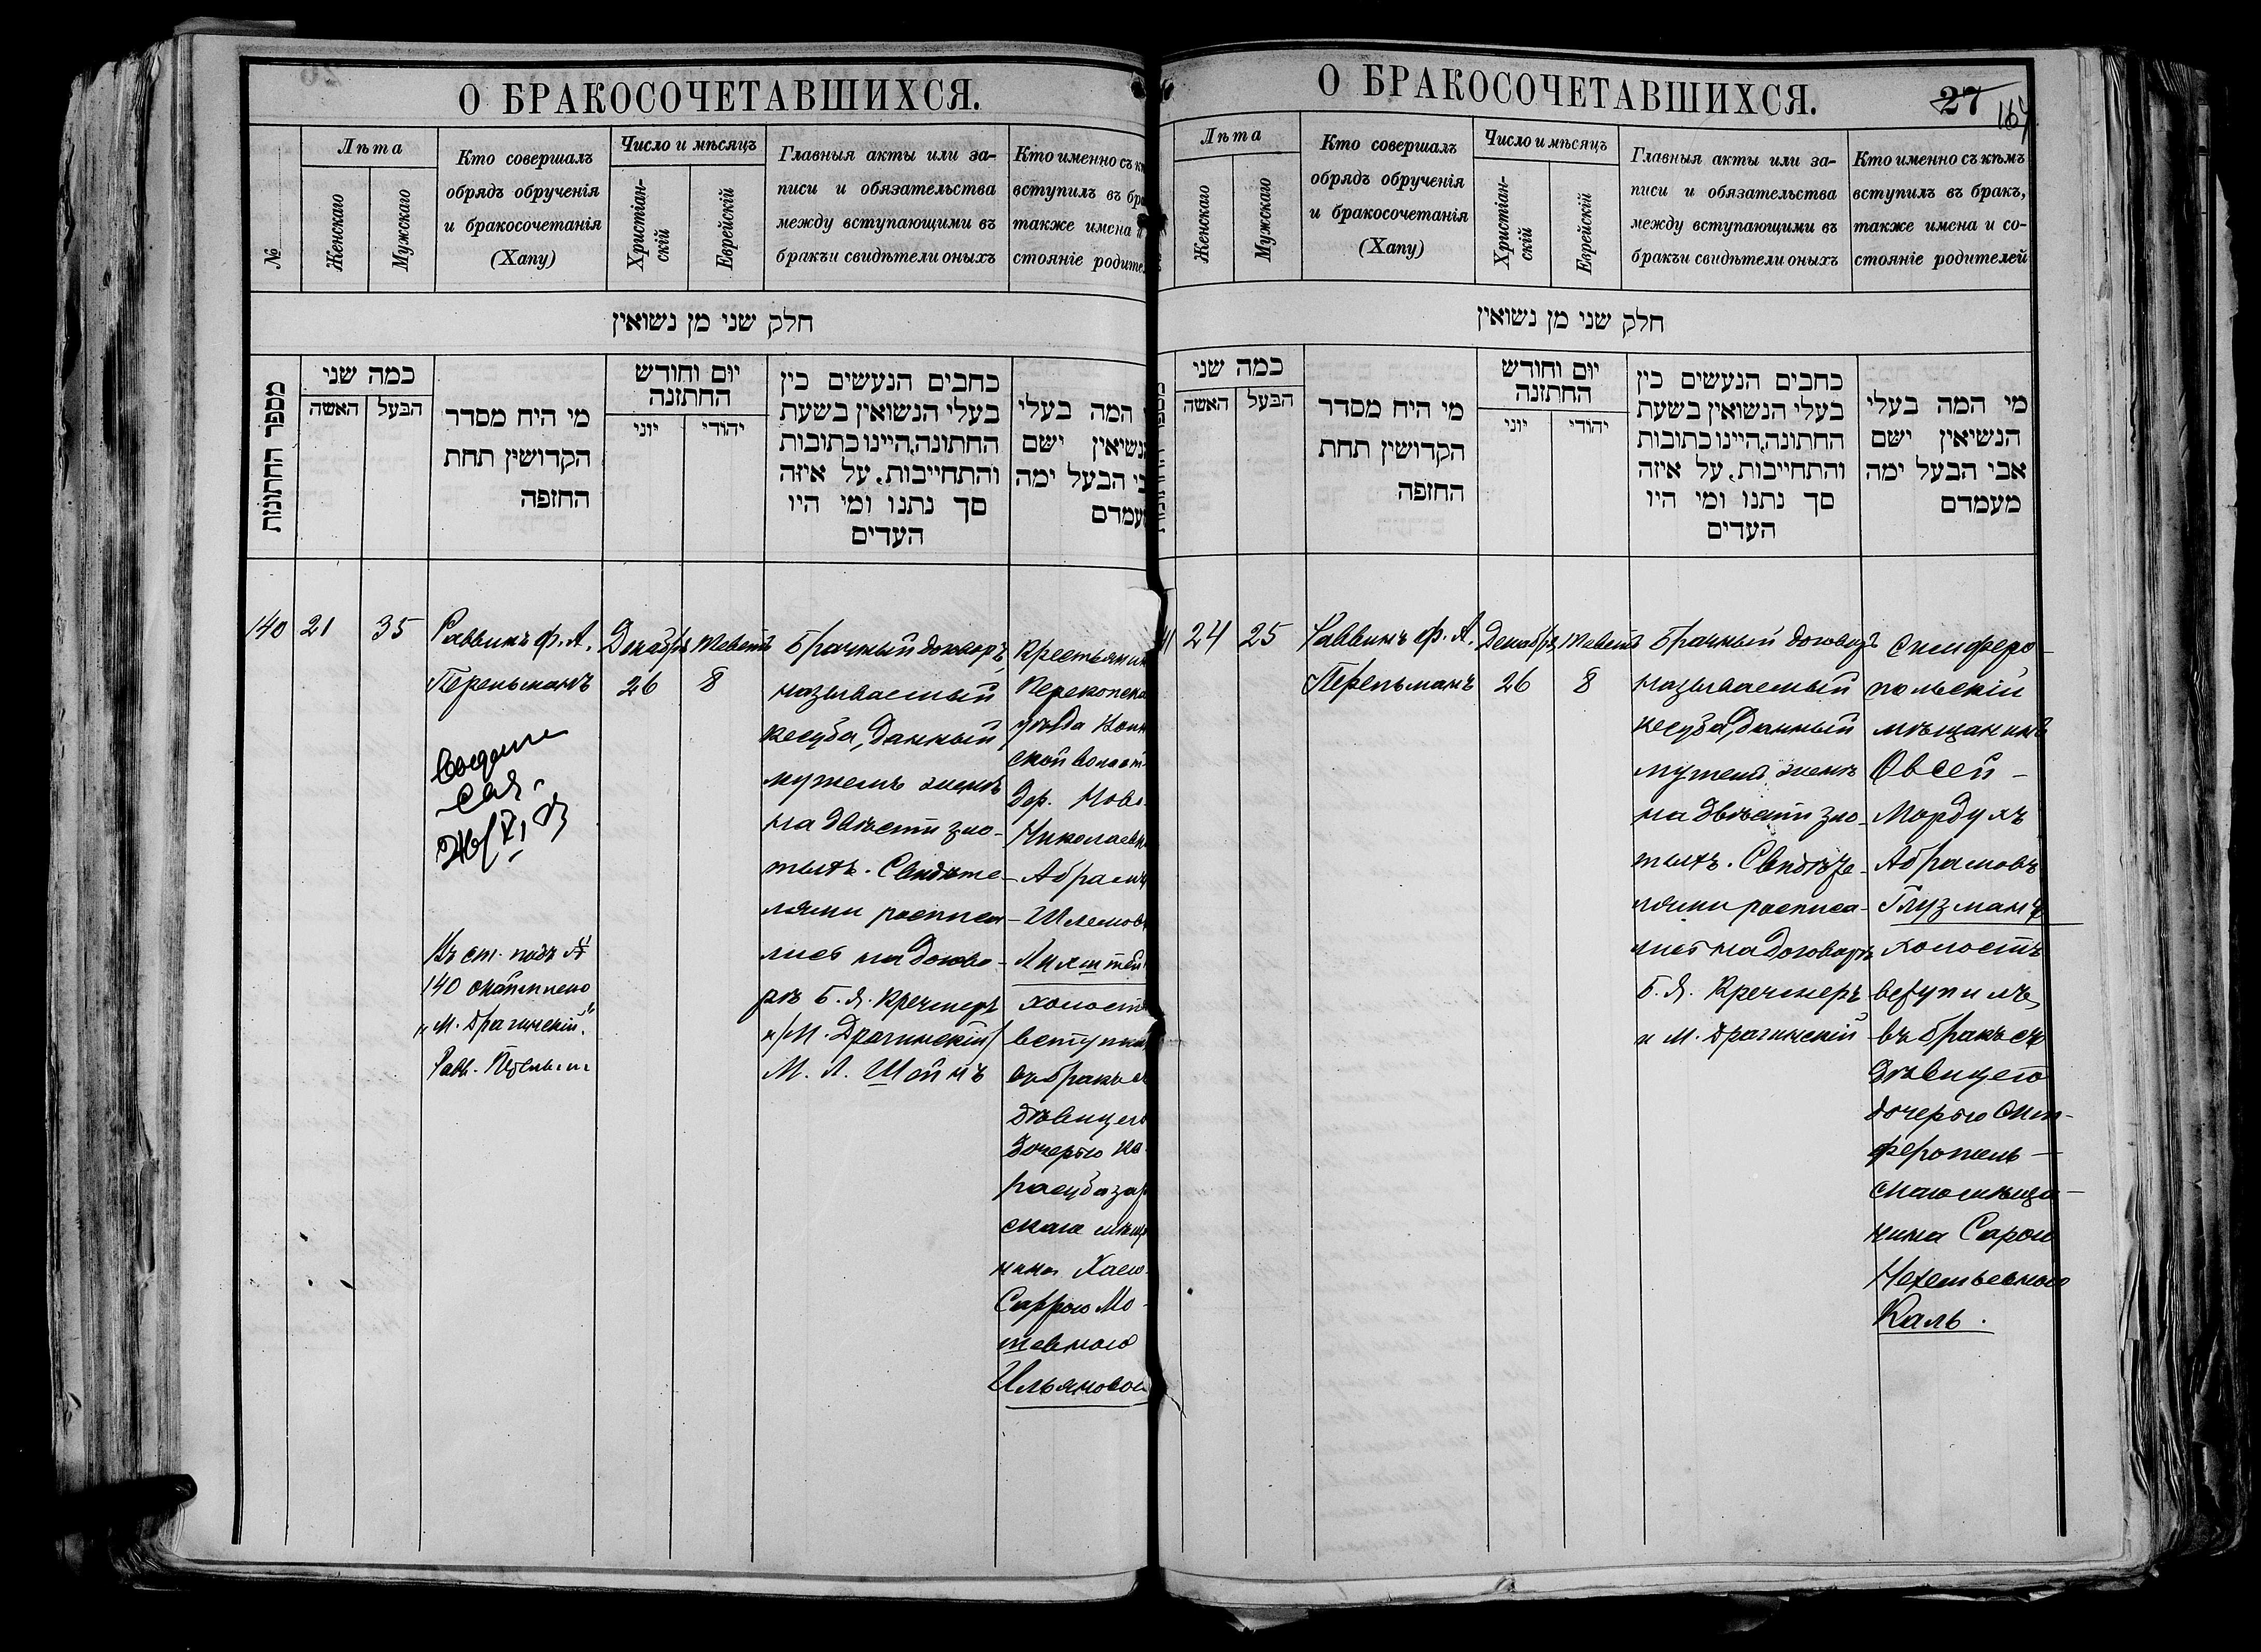 О БРАКОСОЧЕТАВШИХСЯ.
№
Лѣта
Женскаго
Мужскаго
Кто совершалъ
обрядъ обрученія
и бракосочетанія
(Хапу)
Число и мѣсяцъ
Христіан-
скій
Еврейскій
Главныя акты или за-
писи и обязательства
между вступающими въ
бракъи свидѣтели оныхъ
Кто именно съ к
вступилъ въ бра
также имена и
стояніе родител
חלק שני מן נשואין
מספר החתונות
כמה שני
האשה
הבעל
מי היח מסדר
הקדושין תחת
החזפה
יום וחודש
החתזנה
יוני
יהודי
כחבים הנעשים כין
בעלי הנשואין בשעת
החתונה,היינו כתובות
והתחייבות, על איזה
סך נתנו ומי היו
העדים
המה בעלי
נשיאין ישם
בי הבעל ימה
עמדם
140
21
35
Раввинъ Ф. А.
Перельманъ
Декабрь
26
Теветъ
8
Брачный договоръ,
называемый
кесуба, данный
мужемъ женѣ
на двѣсти зло-
тыхъ. Свидѣте-
лями росписа-
лись на догово-
рѣ Б. Я. Кречмеръ
и /М. Драгинскій/
М. Л. Шейнъ
Крестьянин
Перекопска
уѣзда
ской волост
дер. Ново-
Николаевк
Абрамъ
Шлемовъ
Лихтшей
холостъ
вступил
въ бракъ съ
дѣвицею
дочерью Ка-
расубазар
скаго мѣща
нина Хаею-
Саррою Мо-
шевною
Ильяновою
Въ ст. подъ №
140
"М. Драгинскій".
Равв. Перельман
О БРАКОСОЧЕТАВШИХСЯ.
27
167
Лѣта
Женскаго
Мужскаго
Кто совершалъ
обрядъ обрученія
и бракосочетанія
(Хапу)
Число и мѣсяцъ
Христіан-
скій
Еврейскій
Главныя акты или за-
писи и обязательства
между вступающими въ
бракъи свидѣтели оныхъ
Кто именно съ кѣмъ
вступилъ въ бракъ,
также имена и со-
стояніе родителей
חלק שני מן נשואין
כמה שני
האשה
הבעל
מי היח מסדר
הקדושין תחת
החזפה
יום וחודש
החתזנה
יוני
יהודי
כחבים הנעשים כין
בעלי הנשואין בשעת
החתונה,היינו כתובות
והתחייבות, על איזה
סך נתנו ומי היו
העדים
מי המה בעלי
הנשיאין ישם
אבי הבעל ימה
מעמדם
24
25
Раввинъ Ф. А.
Перельманъ
Декабрь
26
Теветъ
8
Брачный договоръ
называемый
кесуба, данный
мужемъ женѣ
на двѣсти зло-
тыхъ. Свидѣте-
лями росписа-
лись на договорѣ
Б. Я. Кречмеръ
и М. Драгинскій
Симферо-
польскій
мѣщанинъ
Овсей-
Мордухъ
Абрамовъ
Глузманъ
холостъ
вступилъ
въ бракъ съ
дѣвицею
дочерью Сим-
ферополь-
скаго мѣща-
нина Сарою
Нехемьевною
Каль.